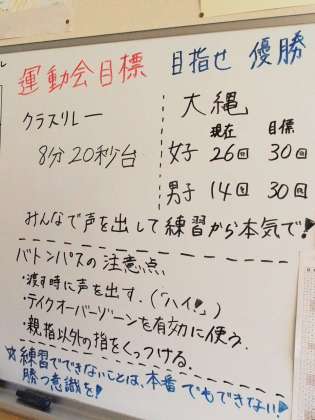 運動会目標 目指せ 優勝
クラスリレー
8分20秒台
大縄
現在 目標
女子 26回 30回
男子 14回 30回
みんなで声を出して練習から本気で!
バトンパスの注意点
・渡す時に声を出す.(「ハイ!」)
・テイクオーバーゾーンを有効に使う.
・親指以外の指をくっつける.
☆練習でできないことは、本番でもできない!
勝つ意識を!